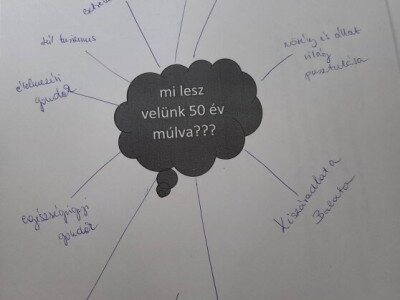 túl turizmus
élelmezési
gondok
mi lesz
velünk 50 év
múlva???
növény és állat
világ
pusztulása
egészségügyi
gondok
Kiszáradhat a